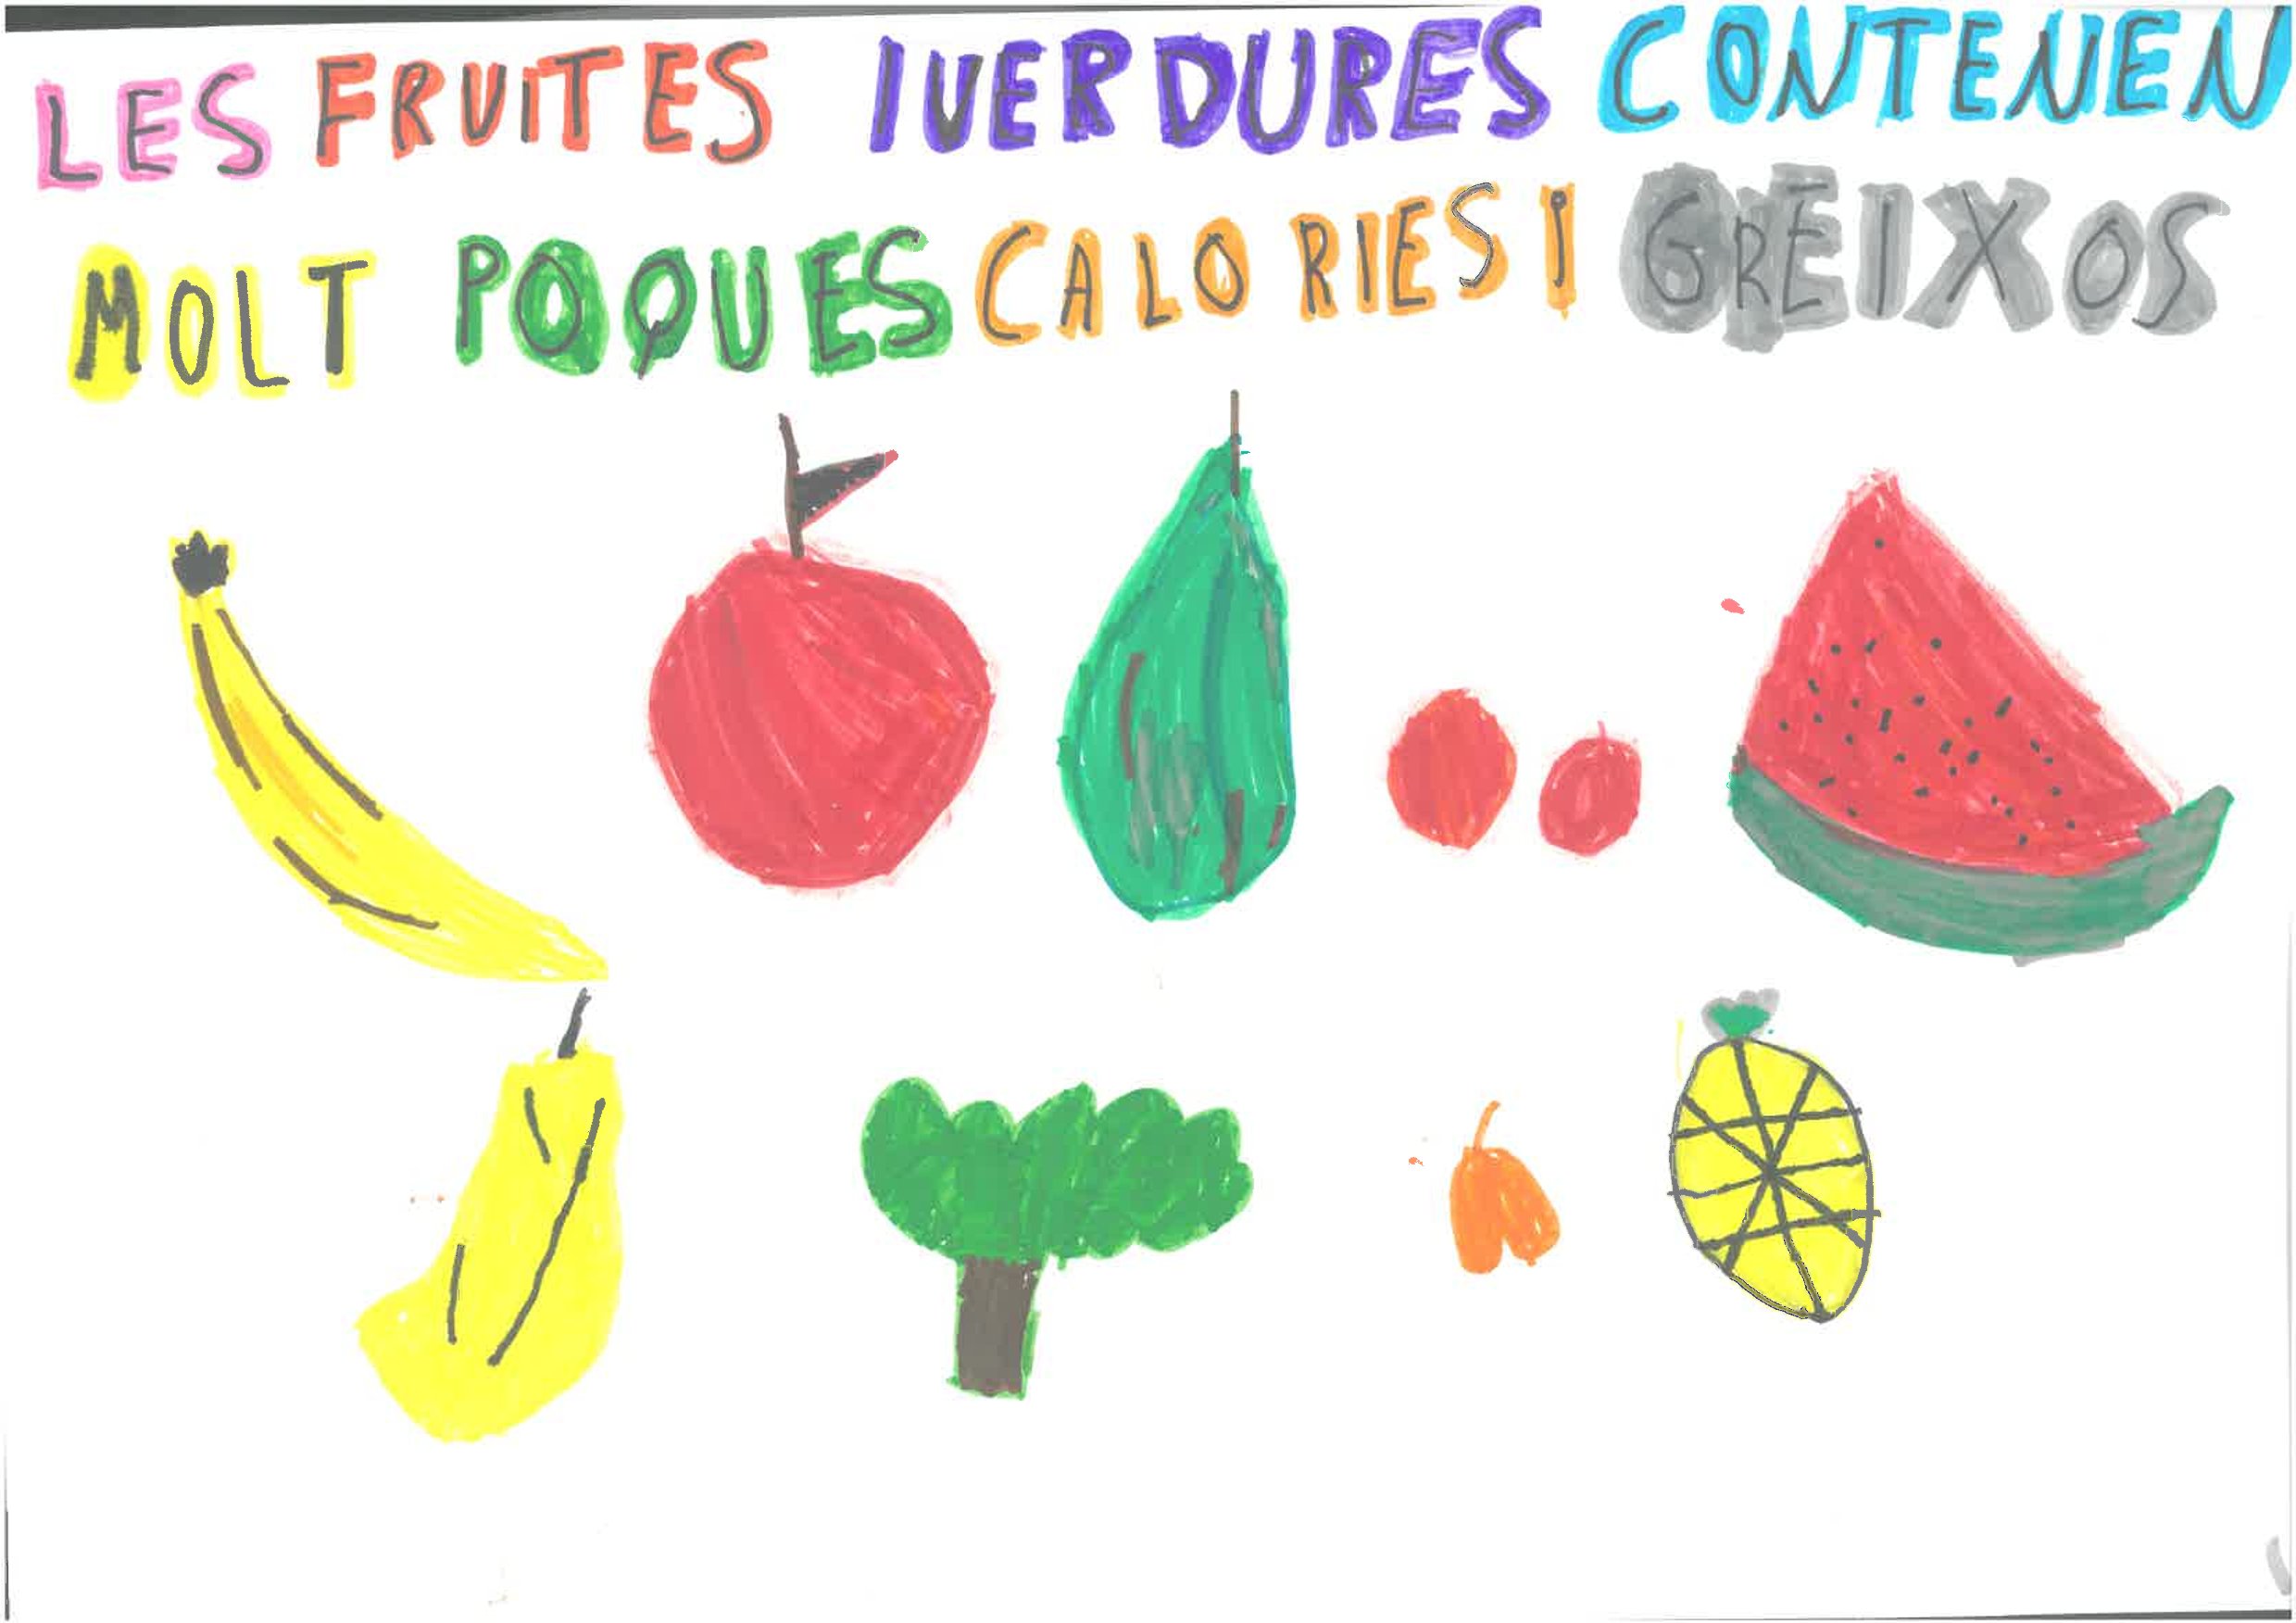 LES FRUITES I VERDURES CONTENEN
MOLT POQUES CALORIES I GREIXOS